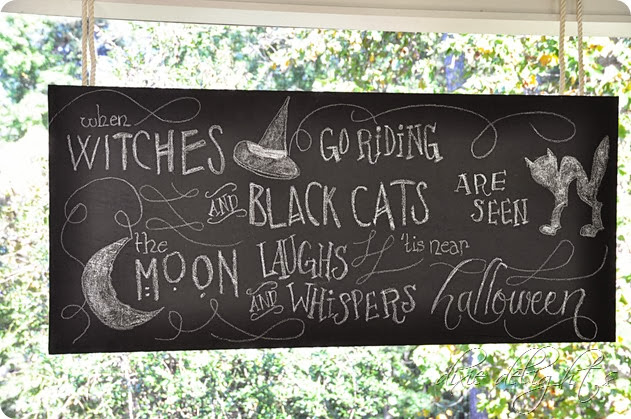 when
WITCHES GO RiDiNG
AND BLACK CATS ARE SEEN
the MOON LAUGHS 'tis near
AND WHiSPERS halloween
dixie delights